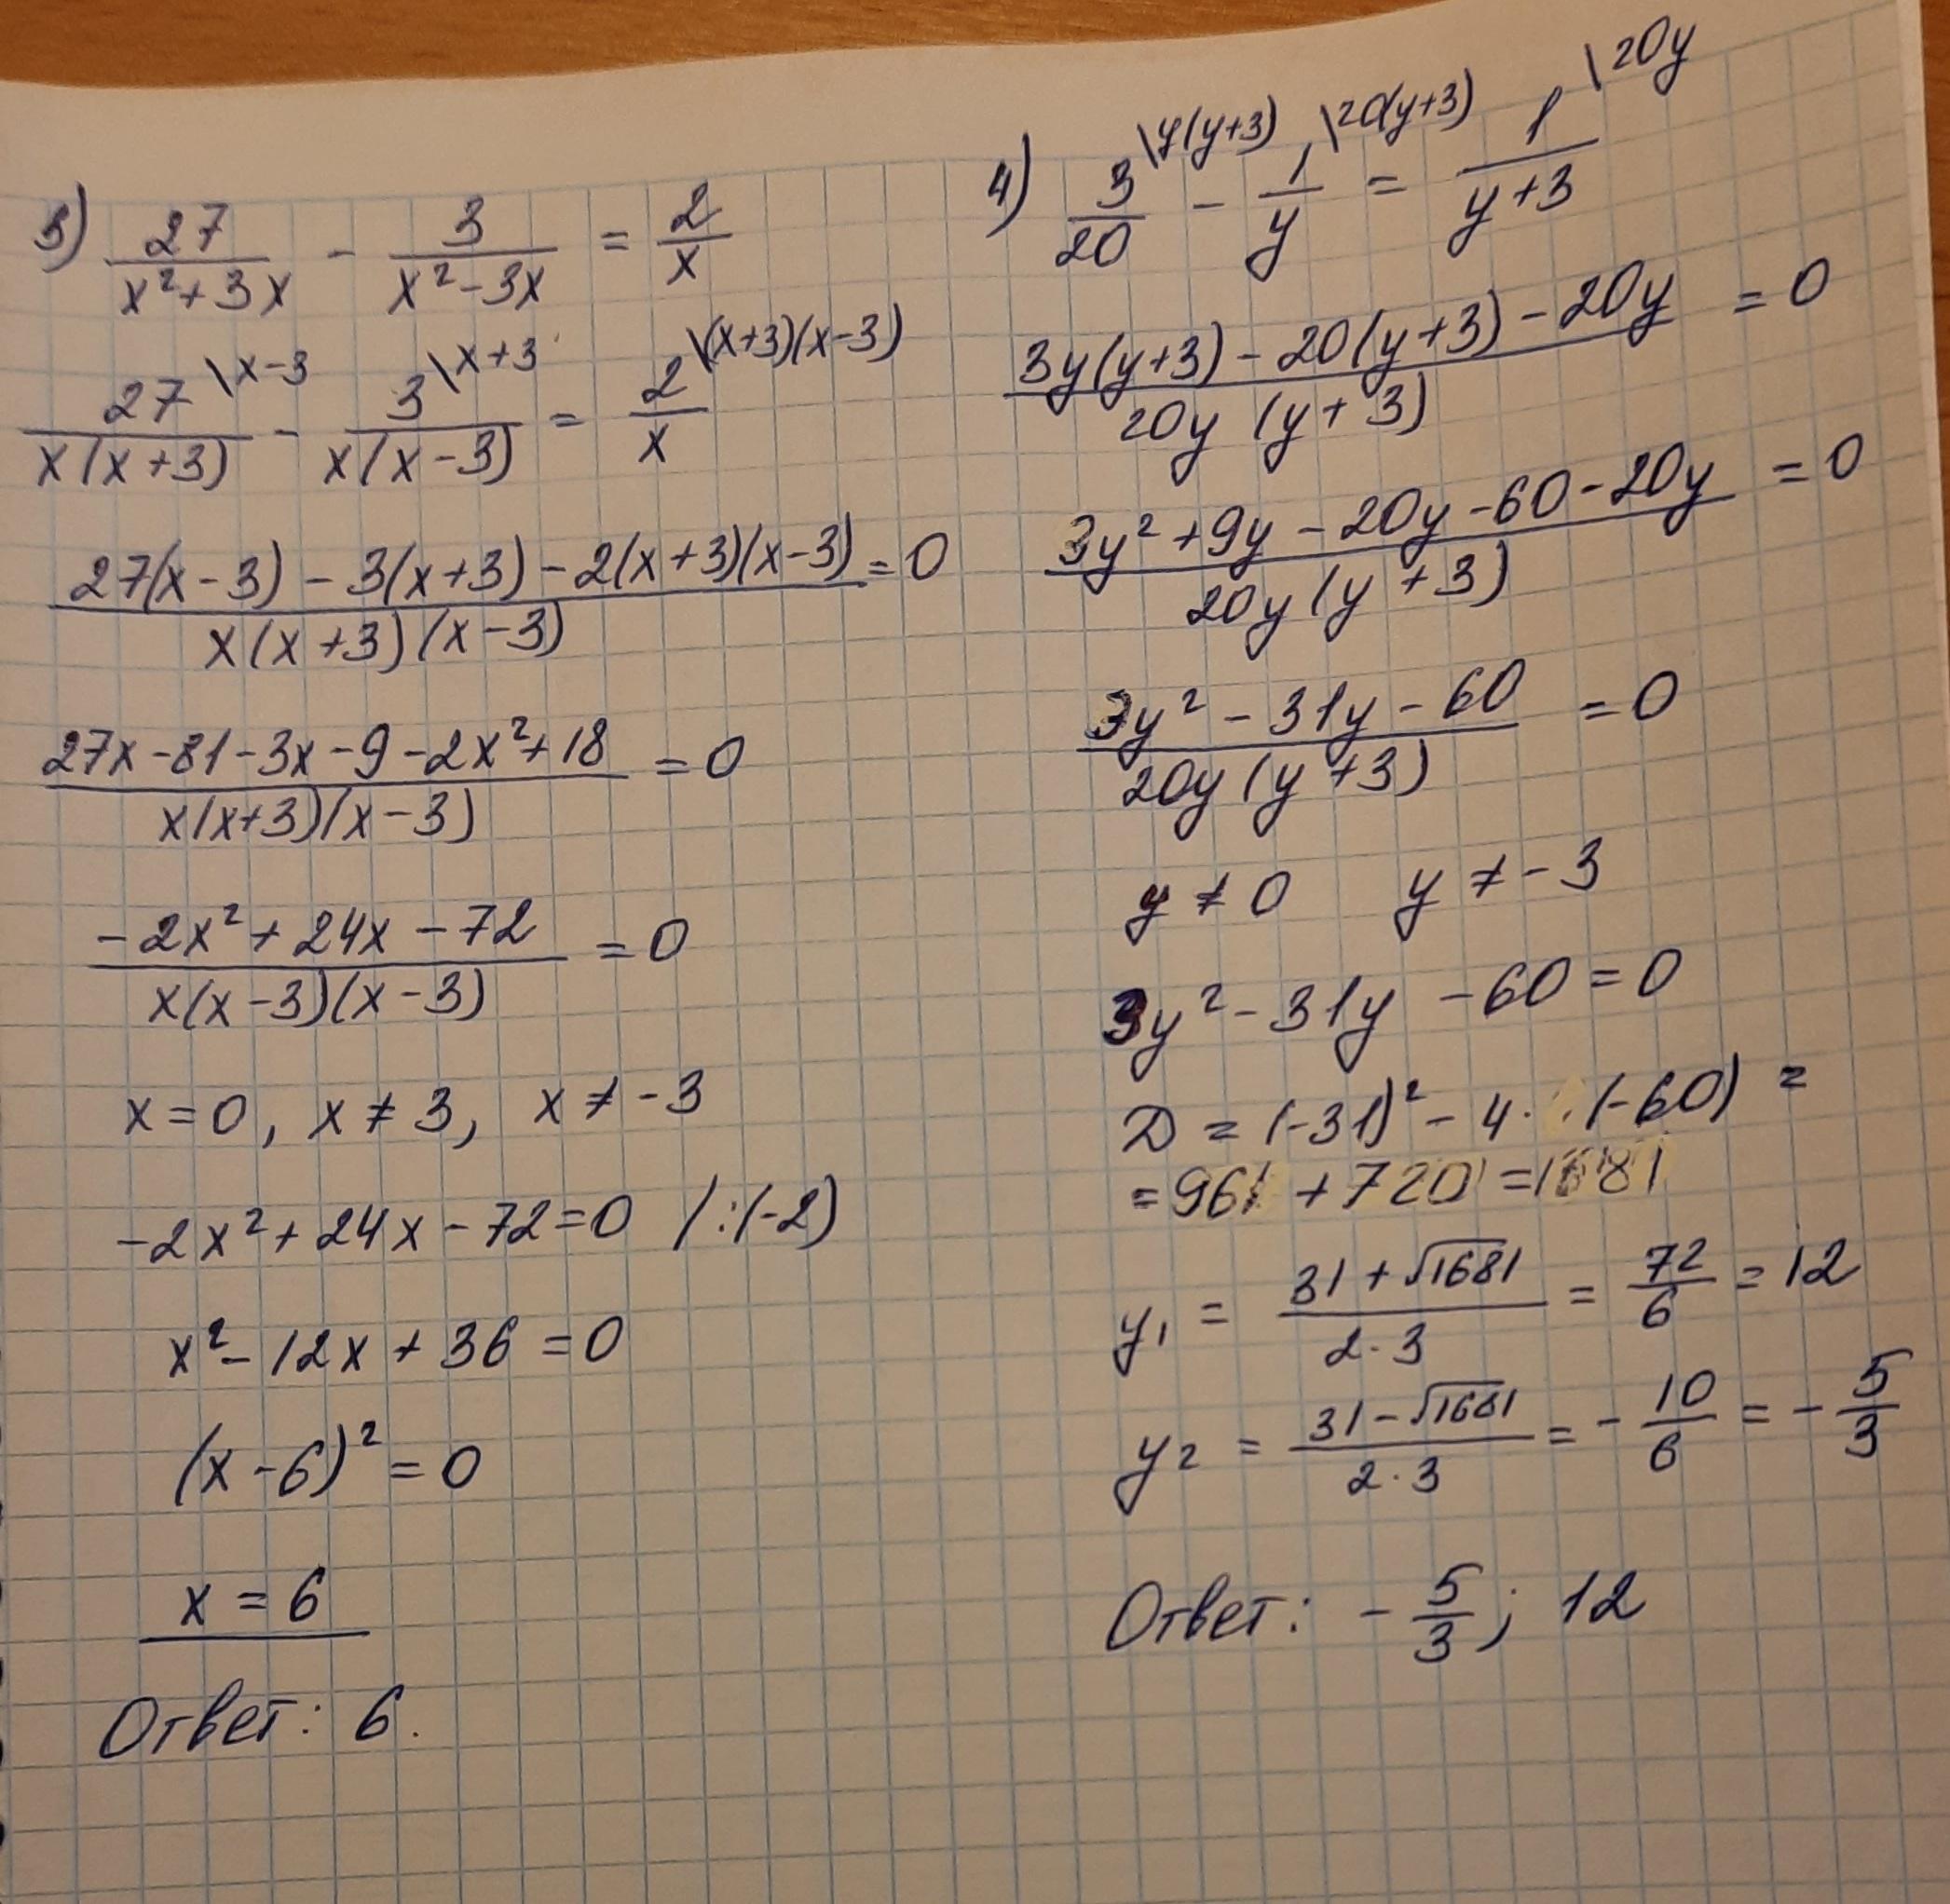 3) 27/(x²+3x) - 3/(x²-3x) = 2/x
27\x-3/(x(x+3)) - 3\x+3/(x(x-3)) = 2\(x+3)(x-3)/x
(27(x-3) - 3(x+3) - 2(x+3)(x-3))/(x(x+3)(x-3)) = 0
(27x-81-3x-9-2x²+18)/(x(x+3)(x-3)) = 0
(-2x²+24x-72)/(x(x-3)(x-3)) = 0
x=0, x≠3, x≠-3
-2x²+24x-72=0 /:(-2)
x²-12x+36=0
(x-6)²=0
x=6
Ответ: 6.
4) 3\y(y+3)/20 - 1\20(y+3)/y = 1\20y/(y+3)
(3y(y+3)-20(y+3)-20y)/(20y(y+3)) = 0
(3y²+9y-20y-60-20y)/(20y(y+3)) = 0
(3y²-31y-60)/(20y(y+3)) = 0
y≠0 y≠-3
3y²-31y-60=0
D=(-31)²-4· ·(-60)=
=961+720=1681
y₁ = (31+√1681)/(2·3) = 72/6 = 12
y₂ = (31-√1681)/(2·3) = -10/6 = -5/3
Ответ: -5/3; 12